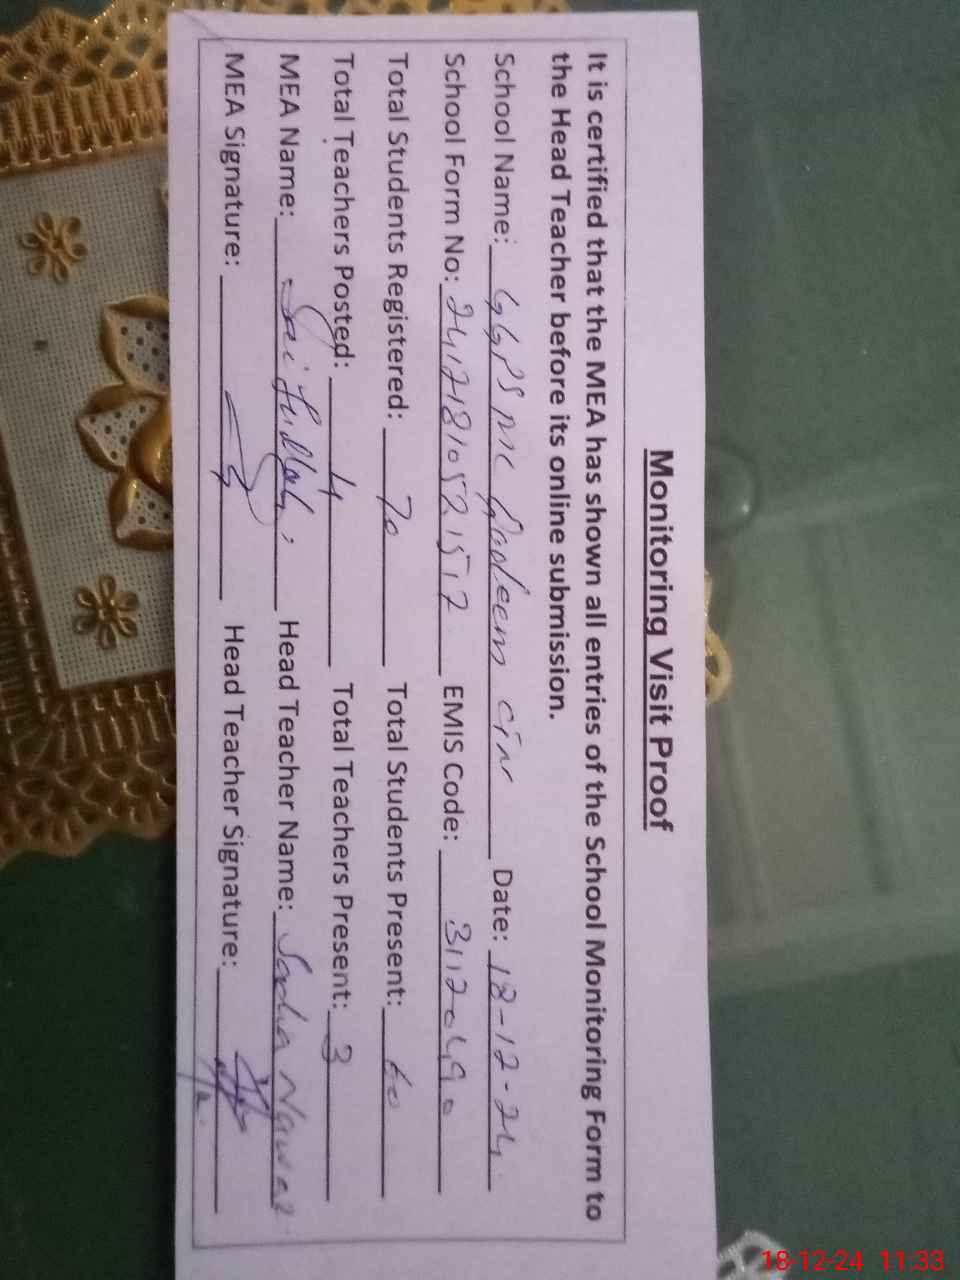 Monitoring Visit Proof
It is certified that the MEA has shown all entries of the School Monitoring Form to
the Head Teacher before its online submission.
School Name: GGPS MC Date: 18-12-24
School Form No: EMIS Code: 31120490
Total Students Registered: 70 Total Students Present: 60
Total Teachers Posted: 4 Total Teachers Present: 3
MEA Name: Saifullah Head Teacher Name: Sadia Nawaz
MEA Signature: Head Teacher Signature:
18-12-24 11:33